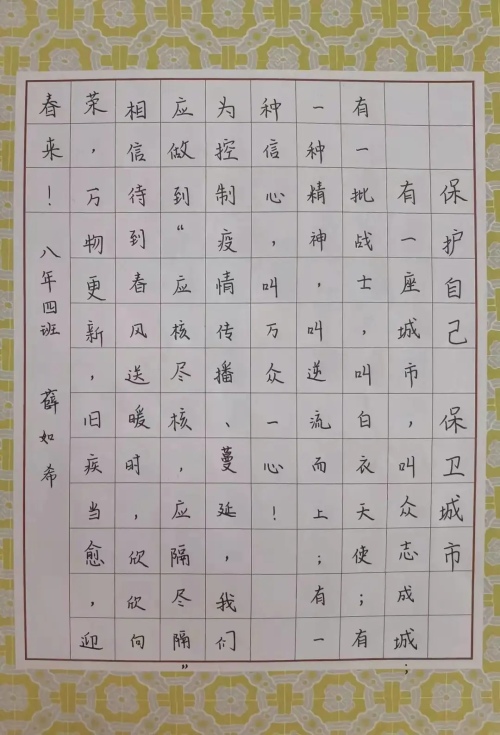 保护自己 保卫城市
有一座城市，叫众志成城；
有一批战士，叫白衣天使；有
一种精神，叫逆流而上；有一
种信心，叫万众一心！
为控制疫情传播、蔓延，我们
应做到“应核尽核，应隔尽隔”
相信待到春风送暖时，欣欣向
荣，万物更新，旧疾当愈，迎
春来！
八年四班 薛如希